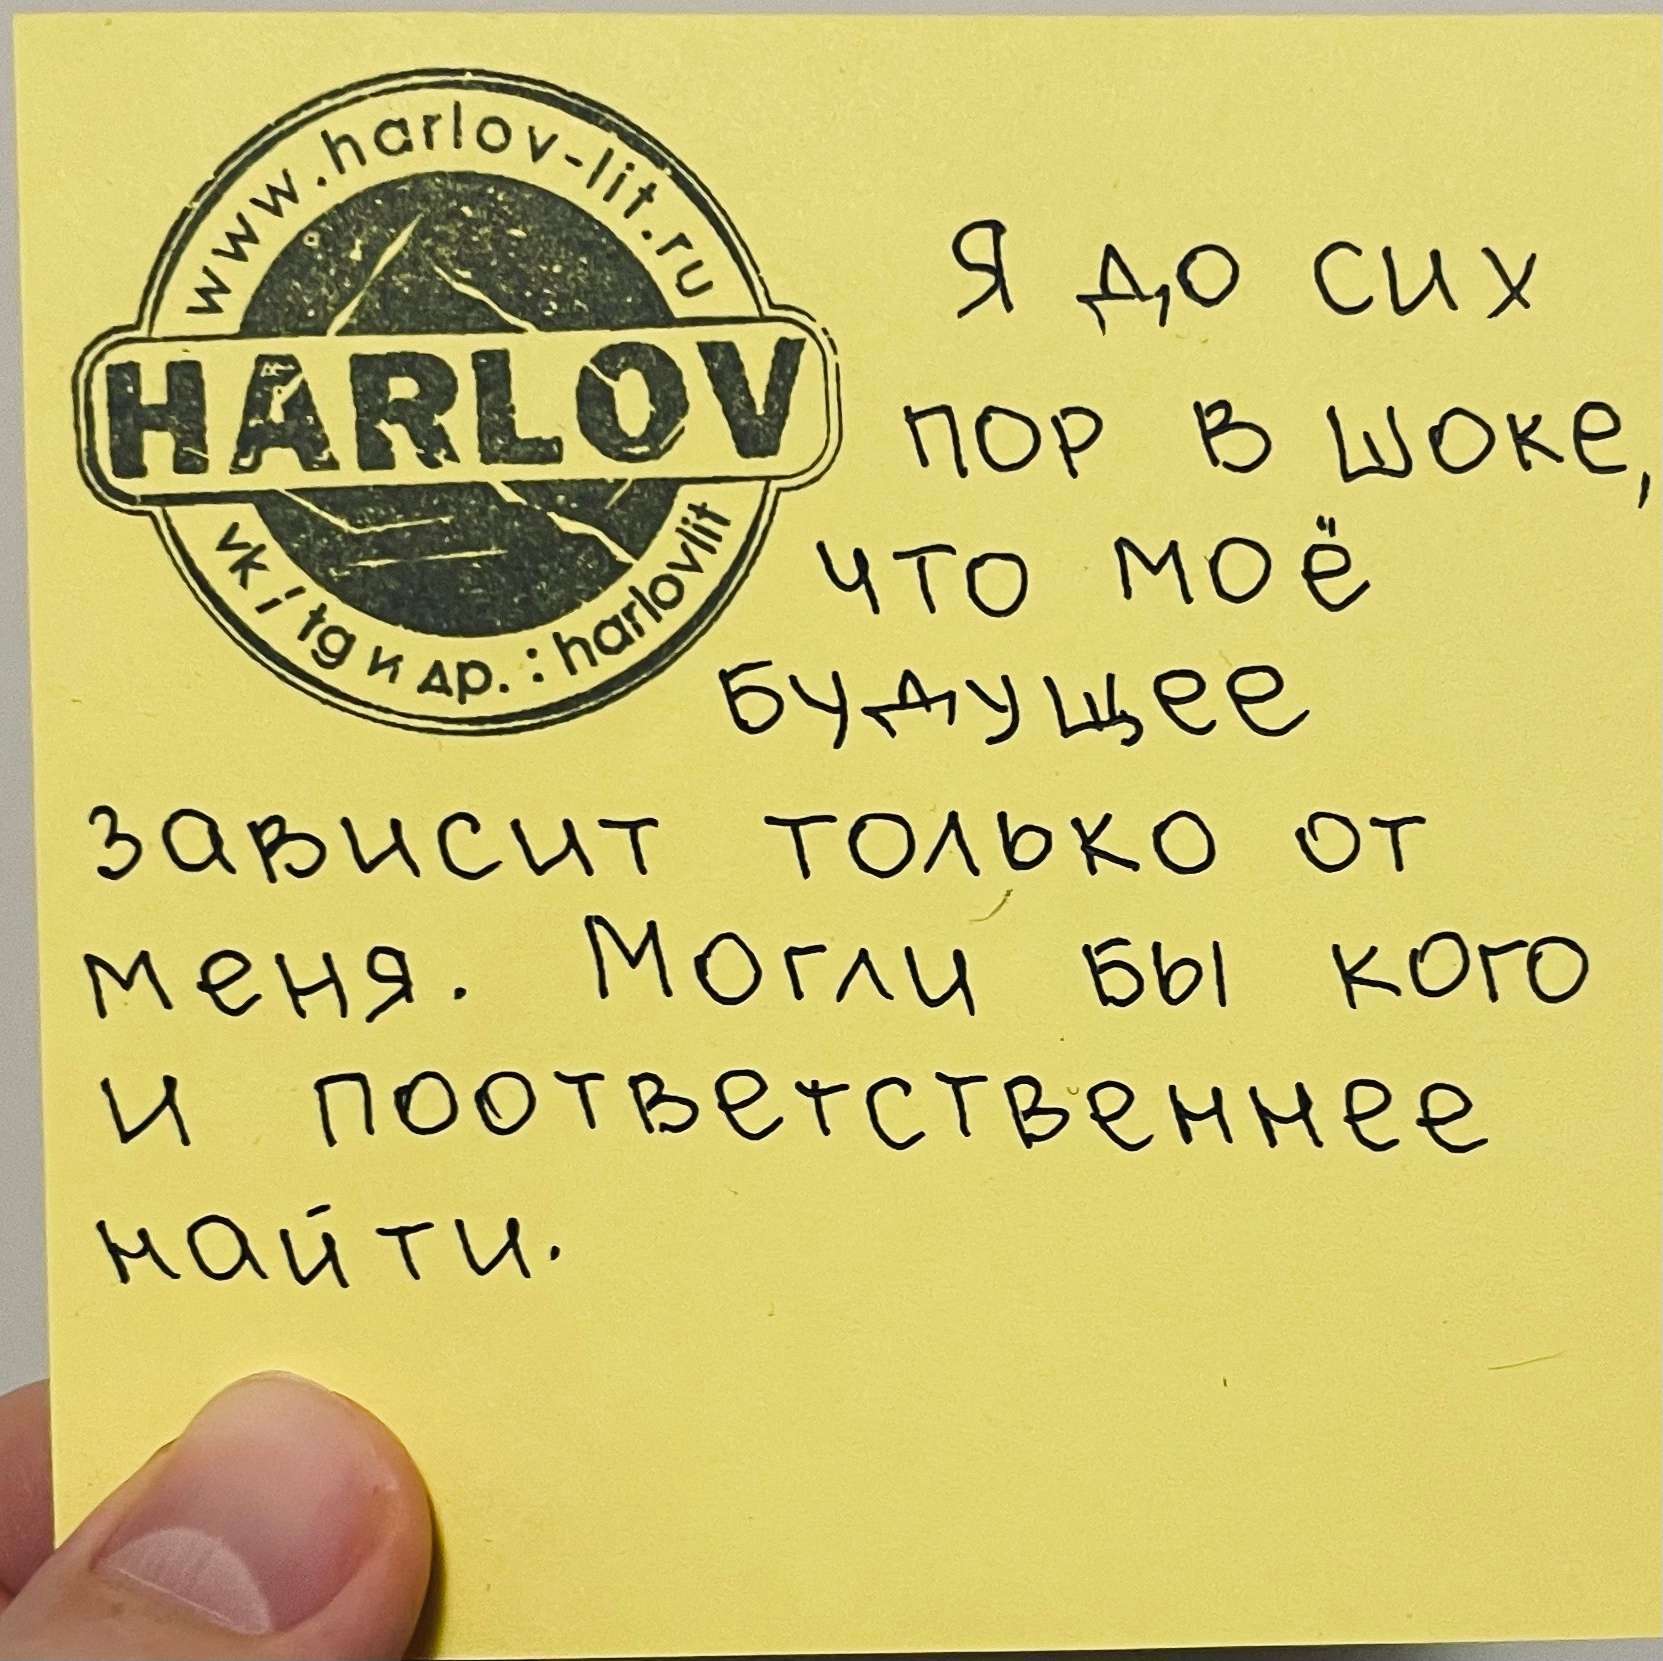 www.harlov-lit.ru
HARLOV
vk / tg и др. : harlovlit
Я до сих
пор в шоке,
что моё
будущее
зависит только от
меня. Могли бы кого
и поответственнее
найти.